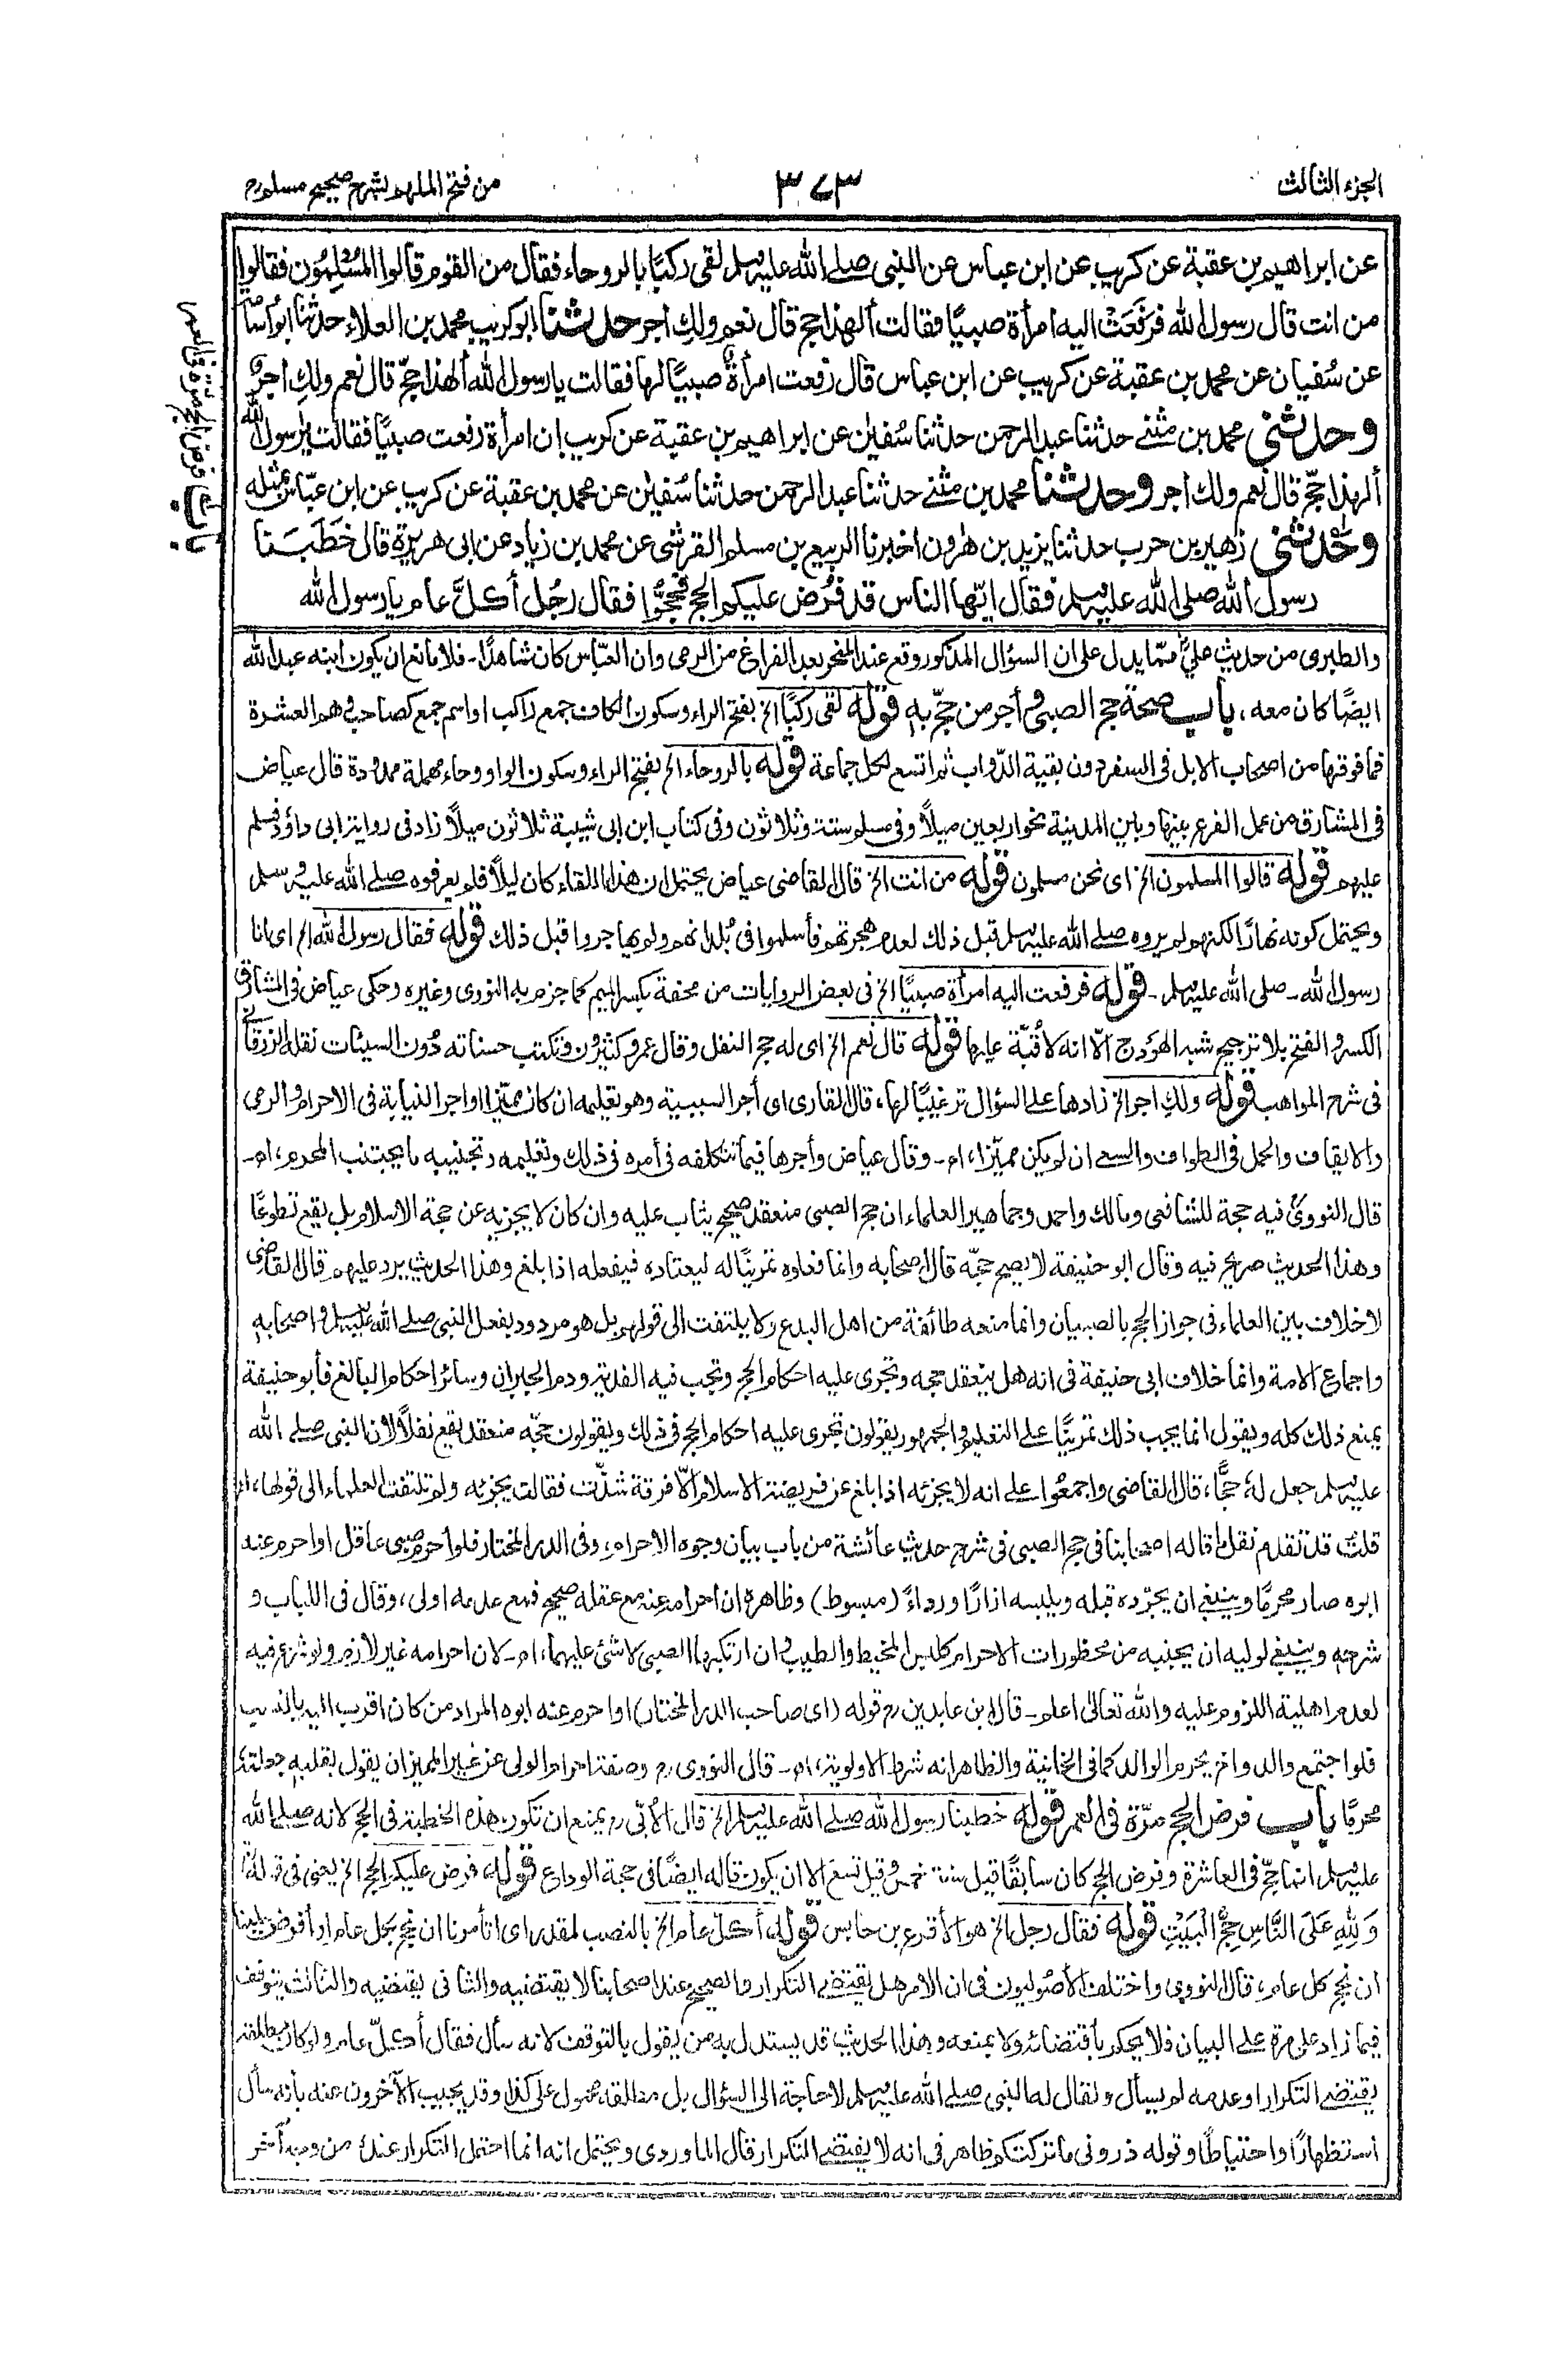 الجزء الثالث
٣٧٣
من فتح الملهم بشرح صحيح مسلم
عن ابراهيم بن عقبة عن كريب عن ابن عباس عن النبى صلے الله عليه وسلم لقى ركبًا بالروحاء فقال من القوم قالوا المسْلِمُون فقالوا
من انت قال رسول الله فرفَعَتْ اليه امرأة صبيًا فقالت ألهذا حج قال نعم ولكِ اجر حدثنا ابوكريب محمد بن العلاء حدثنا ابواسامة
عن سُفيان عن محمد بن عقبة عن كريب عن ابن عباس قال رفعت امرأةٌ صبيًا لها فقالت يا رسول الله ألهذا حجّ قال نعم ولكِ اجرٌ
وحدثنى محمد بن مثنے حدثنا عبدالرحمن حدثنا سُفيٰن عن ابراهيم بن عقبة عن كريب ان امرأة رفعت صبيًا فقالت يارسول الله
ألهذا حجّ قال نعم ولك اجر وحدثنا محمد بن مثنے حدثنا عبدالرحمن حدثنا سُفيٰن عن محمد بن عقبة عن كريب عن ابن عبّاس بمثله
وحدثنى زهير بن حرب حدثنا يزيد بن هٰرون اخبرنا الربيع بن مسلم القرشى عن محمد بن زياد عن ابى هريرة قال خَطَبَنا
رسول الله صلى الله عليه وسلم فقال ايّها الناس قد فُرض عليكم الحج فحُجُّوا فقال رجُل أكلَّ عام يا رسول الله
باب فرض الحج مرة فى العمر
والطبرى من حديث علىّ مّما يدل على ان السؤال المذكور وقع عند المنحر بعد الفراغ من الرمى وان العبّاس كان شاهدًا۔ فلا مانع ان يكون ابنه عبدالله
ايضًا كان معه، باب صحة حج الصبى وأجر من حجّ به قوله لقى ركبًا الخ بفتح الراء وسكون الكاف جمع راكب او اسم جمع كصاحب وهم العشرة
فما فوقها من اصحاب الابل فى السفر دون بقية الدّواب ثم اتسع لكل جماعة قوله بالروحاء الخ بفتح الراء وسكون الواو وحاء مهملة ممدودة قال عياض
فى المشارق من عمل الفرع بينها وبين المدينة نحو اربعين ميلاً وفى مسلم ستة وثلاثون وفى كتاب ابن ابى شيبة ثلاثون ميلاً زاد فى رواية ابى داؤد فسلم
عليهم قوله قالوا المسلمون الخ اى نحن مسلمون قوله من انت الخ قال القاضى عياض يحتمل ان هذا اللقاء كان ليلاً فلم يعرفوه صلے الله عليه وسلم
ويحتمل كونه نهارًا لكنهم لم يروه صلے الله عليه وسلم قبل ذلك لعدم هجرتهم فأسلموا فى بُلدانهم ولم يهاجروا قبل ذلك قوله فقال رسول الله الخ اى انا
رسول الله۔ صلى الله عليه وسلم۔ قوله فرفعت اليه امرأة صبيًا الخ فى بعض الروايات من محفة بكسر الميم كما جزم به النووى وغيره وحكى عياض فى المشارق
الكسر والفتح بلا ترجيح شبه الهَوْدج الّا انه لا قُبّة عليها قوله قال نعم الخ اى له حج النفل وقال عمر وكثيرون فتكتب حسناته دُون السيئات نقله الزرقانى
فى شرح المواهب قوله ولكِ اجر الخ زادها على السؤال ترغيبًا لها، قال القارى اى أجر السببية وهو تعليمه ان كان مميّزا او اجر النيابة فى الاحرام والرمى
والايقاف والحمل فى الطواف والسعے ان لم يكن مميّزا، اھ۔ وقال عياض وأجرها فيما تتكلفه فى أمره فى ذلك وتعليمه وتجنيبه ما يجتنب المحرم، اھ۔
قال النووىّ فيه حجة للشافعى ومالك واحمد وجماهير العلماء ان حج الصبى منعقد صحيح يثاب عليه وان كان لا يجزيه عن حجة الاسلام بل يقع تطوعًا
وهذا الحديث صريح فيه وقال ابو حنيفة لا يصح حجّه قال اصحابه وانما فعلوه تمرينًا له ليعتاده فيفعله اذا بلغ وهذا الحديث يرد عليهم قال القاضى
لاخلاف بين العلماء فى جواز الحج بالصبيان وانما منعه طائفة من اهل البدع ولا يلتفت الى قولهم بل هو مردود بفعل النبى صلے الله عليه وسلم واصحابه
واجماع الامة وانما خلاف ابى حنيفة فى انه هل ينعقد حجه وتجرى عليه احكام الحج وتجب فيه الفدية ودم الجبران وسائر احكام البالغ فأبو حنيفة
يمنع ذلك كله ويقول انما يجب ذلك تمرينًا على التعليم والجمهور يقولون تجرى عليه احكام الحج فى ذلك ويقولون حجّه منعقد يقع نفلاً لان النبى صلے الله
عليه وسلم جعل لهٗ حجًّا، قال القاضى واجمعُوا علے انه لا يجزئه اذا بلغ عن فريضة الاسلام الّا فرقة شذّت فقالت يجزئه ولم تلتفت العلماء الى قولها، اھ
قلتُ قد تقدم نقل ما قاله اصحابنا فى حج الصبى فى شرح حديث عائشة من باب بيان وجوه الاحرام، وفى الدر المختار فلو أحرم صبى عاقل او احرم عنه
ابوه صار محرمًا وينبغى ان يجرّده قبله ويلبسه ازارًا ورداءً (مبسوط) وظاهره ان احرامه عنه مع عقله صحيح فمع عدمه اولى، وقال فى اللباب و
شرحه وينبغى لوليه ان يجنبه من محظورات الاحرام كلبس المخيط والطيب وان ارتكبها الصبى لا شئ عليهما، اھ۔ لان احرامه غير لازم ولو شرع فيه
لعدم اهلية اللزوم عليه والله تعالىٰ اعلم۔ قال ابن عابدين رح قوله (اى صاحب الدر المختار) او احرم عنه ابوه المراد من كان اقرب اليه بالنسب
فلو اجتمع والد واخ يحرم الوالد كما فى الخانية والظاهر انه شرط الاولوية، اھ۔ قال النووى رح وصفة احرام الولى عن غير المميز ان يقول بقلبه جعلته
محرمًا باب فرض الحج مرّة فى العمر قوله خطبنا رسول الله صلے الله عليه وسلم الخ قال الأبّى رح يمنع ان تكون هذه الخطبة فى الحج لانه صلے الله
عليه وسلم انما حجّ فى العاشرة وفرض الحج كان سابقًا قيل سنة خمس وقيل تسع الا ان يكون قاله ايضًا فى حجة الوداع قوله فرض عليكم الحج الخ يعنى فى قوله
وَلِلهِ عَلَى النَّاسِ حِجُّ الْبَيْتِ قوله فقال رجل الخ هو الأقرع بن حابس قوله أكلّ عام الخ بالنصب لمقدر اى اتأمرنا ان نحج بكل عام او أفرض علينا
ان نحج كل عام، قال النووى واختلف الأصوليون فى ان الامر هل يقتضے التكرار والصحيح عند اصحابنا لا يقتضيه والثانى يقتضيه والثالث يتوقف
فيما زاد على مرة على البيان فلا يحكم بأقتضائه ولا بمنعه وهذا الحديث قد يستدل به من يقول بالتوقف لانه سأل فقال أكلّ عام ولو كان مطلقه
يقتضے التكرار او عدمه لم يسأل ولقال له النبى صلے الله عليه وسلم لا حاجة الى السؤال بل مطلقه محمول على كذا وقد يجيب الآخرون عنه بأنه سأل
استظهارًا واحتياطًا وقوله ذرونى ما تركتكم ظاهر فى انه لا يقتضے التكرار قال الماوردى ويحتمل انه انما احتمل التكرار عنده من وجه آخر